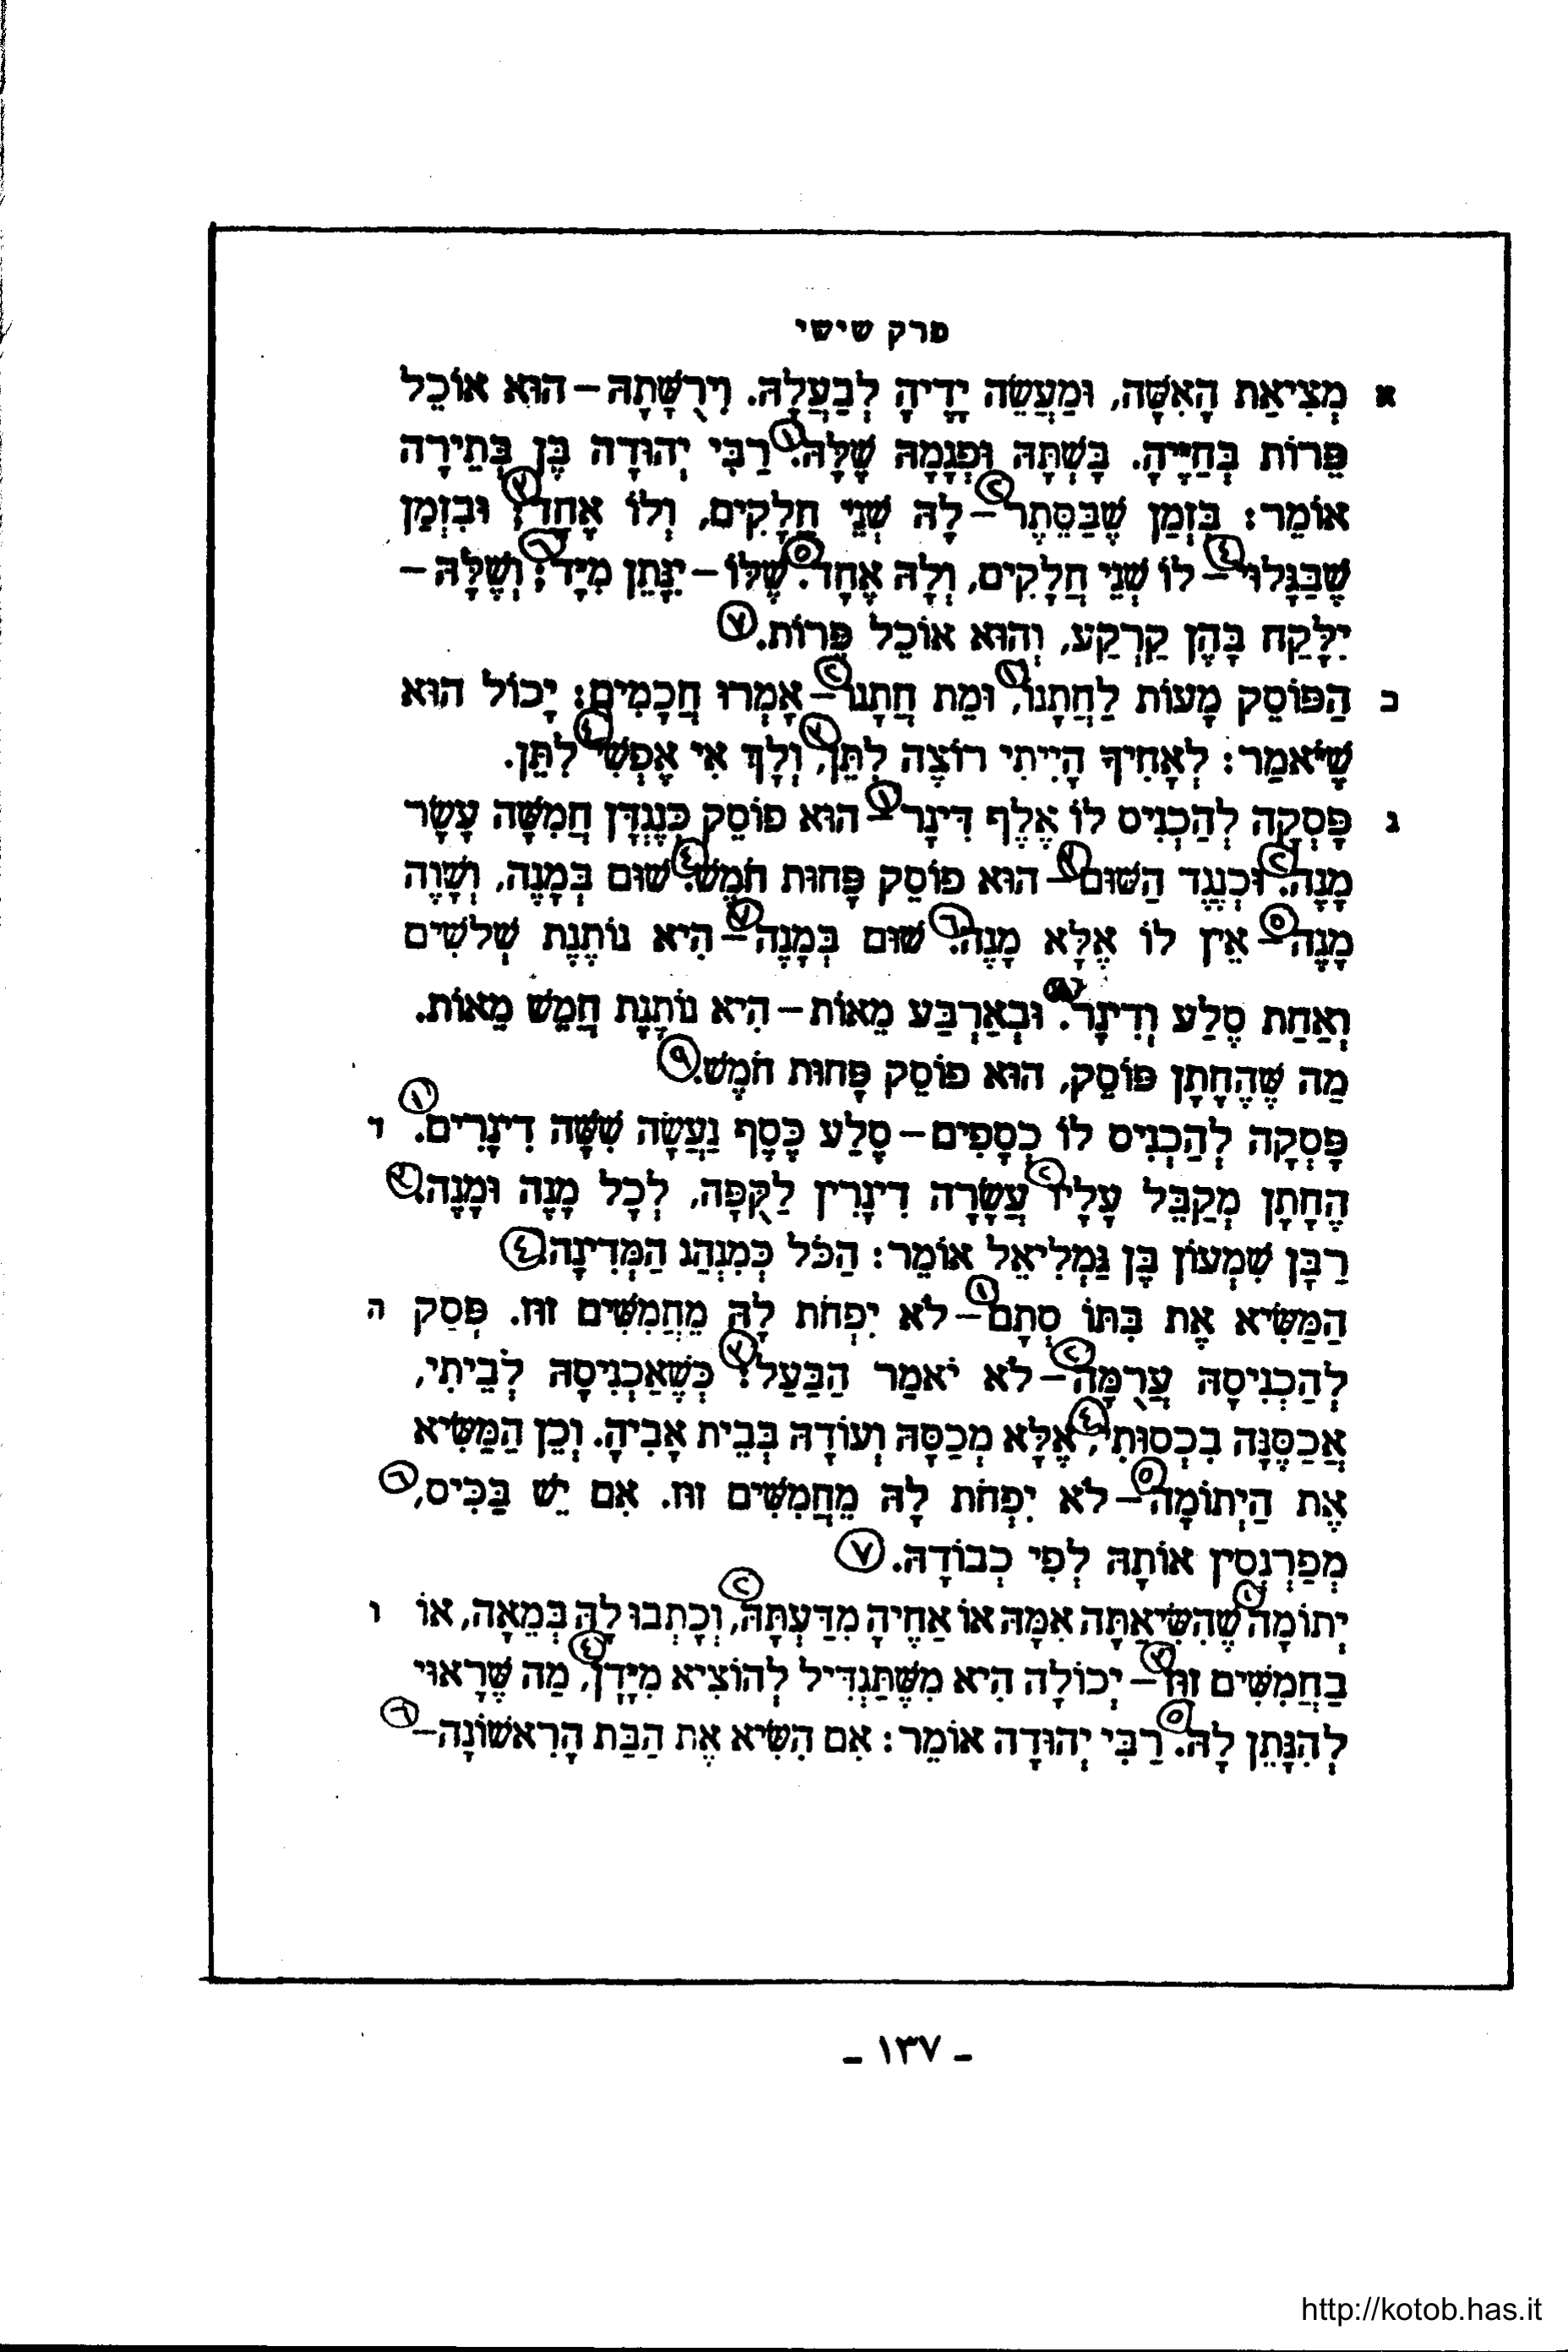 פרק שישי
א מְצִיאַת הָאִשָּׁה, וּמַעֲשֵׂה יָדֶיהָ לְבַעְלָהּ. וִירֻשָּׁתָהּ – הוּא אוֹכֵל
פֵּרוֹת בְּחַיֶּיהָ. בָּשְׁתָּהּ וּפְגָמָהּ שֶׁלָּהּ. (١) רַבִּי יְהוּדָה בֶּן בְּתֵירָה
אוֹמֵר: בִּזְמַן שֶׁבַּסֵּתֶר (٢) – לָהּ שְׁנֵי חֲלָקִים, וְלוֹ אֶחָד; (٣) וּבִזְמַן
שֶׁבַּגָּלוּי (٤) – לוֹ שְׁנֵי חֲלָקִים, וְלָהּ אֶחָד. (٥) שֶׁלּוֹ – יִנָּתֵן מִיָּד; (٦) וְשֶׁלָּהּ –
יִלָּקַח בָּהֶן קַרְקַע, וְהוּא אוֹכֵל פֵּרוֹת. (٧)
ב הַפּוֹסֵק מָעוֹת לַחֲתָנוֹ, (١) וּמֵת חֲתָנוֹ (٢) – אָמְרוּ חֲכָמִים: יָכוֹל הוּא
שֶׁיֹּאמַר: לְאָחִיךָ הָיִיתִי רוֹצֶה לִתֵּן, (٣) וְלָךְ אִי אֶפְשִׁי (٤) לִתֵּן.
ג פָּסְקָה לְהַכְנִיס לוֹ אֶלֶף דִּינָר (١) – הוּא פוֹסֵק כְּנֶגְדָּן חֲמִשָּׁה עָשָׂר
מָנֶה. (٢) וּכְנֶגֶד הַשּׁוּם (٣) – הוּא פוֹסֵק פָּחוּת חֹמֶשׁ. (٤) שׁוּם בְּמָנֶה, וְשָׁוֶה
מָנֶה (٥) – אֵין לוֹ אֶלָּא מָנֶה. (٦) שׁוּם בְּמָנֶה (٧) – הִיא נוֹתֶנֶת שְׁלשִׁים
וְאַחַת סֶלַע וְדִינָר. (٨) וּבְאַרְבַּע מֵאוֹת – הִיא נוֹתֶנֶת חֲמֵשׁ מֵאוֹת.
מַה שֶּׁהֶחָתָן פּוֹסֵק, הוּא פוֹסֵק פָּחוּת חֹמֶשׁ. (٩)
ד פָּסְקָה לְהַכְנִיס לוֹ כְסָפִים – סֶלַע כֶּסֶף נַעֲשָׂה שִׁשָּׁה דִינָרִים. (١)
הֶחָתָן מְקַבֵּל עָלָיו (٢) עֲשָׂרָה דִינָרִין לַקֻּפָּה, לְכָל מָנֶה וּמָנֶה. (٣)
רַבָּן שִׁמְעוֹן בֶּן גַּמְלִיאֵל אוֹמֵר: הַכֹּל כְּמִנְהַג הַמְּדִינָה. (٤)
ה הַמַּשִּׂיא אֶת בִּתּוֹ סְתָם (١) – לֹא יִפְחֹת לָהּ מֵחֲמִשִּׁים זוּז. פָּסַק
לְהַכְנִיסָהּ עֲרֻמָּה (٢) – לֹא יֹאמַר הַבַּעַל: (٣) כְּשֶׁאַכְנִיסָהּ לְבֵיתִי,
אֲכַסֶּנָּה בִכְסוּתִי, (٤) אֶלָּא מְכַסָּהּ וְעוֹדָהּ בְּבֵית אָבִיהָ. וְכֵן הַמַּשִּׂיא
אֶת הַיְתוֹמָה (٥) – לֹא יִפְחֹת לָהּ מֵחֲמִשִּׁים זוּז. אִם יֵשׁ בַּכִּיס, (٦)
מְפַרְנְסִין אוֹתָהּ לְפִי כְבוֹדָהּ. (٧)
ו יְתוֹמָה (١) שֶׁהִשִּׂיאַתָּה אִמָּהּ אוֹ אַחֶיהָ מִדַּעְתָּהּ, (٢) וְכָתְבוּ לָהּ בְּמֵאָה, אוֹ
בַחֲמִשִּׁים זוּז (٣) – יְכוֹלָה הִיא מִשֶּׁתַּגְדִּיל לְהוֹצִיא מִיָּדָן, (٤) מַה שֶּׁרָאוּי
לְהִנָּתֵן לָהּ. (٥) רַבִּי יְהוּדָה אוֹמֵר: אִם הִשִּׂיא אֶת הַבַּת הָרִאשׁוֹנָה – (٦)
– ١٣٧ –
http://kotob.has.it